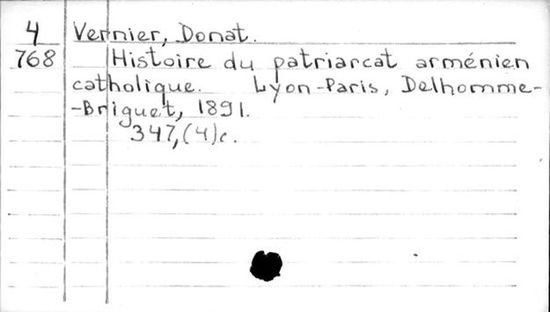 4 Vernier, Donat.
768 Histoire du patriarcat arménien
catholique. Lyon-Paris, Delhomme-
-Briguet, 1891.
347,(4)c.